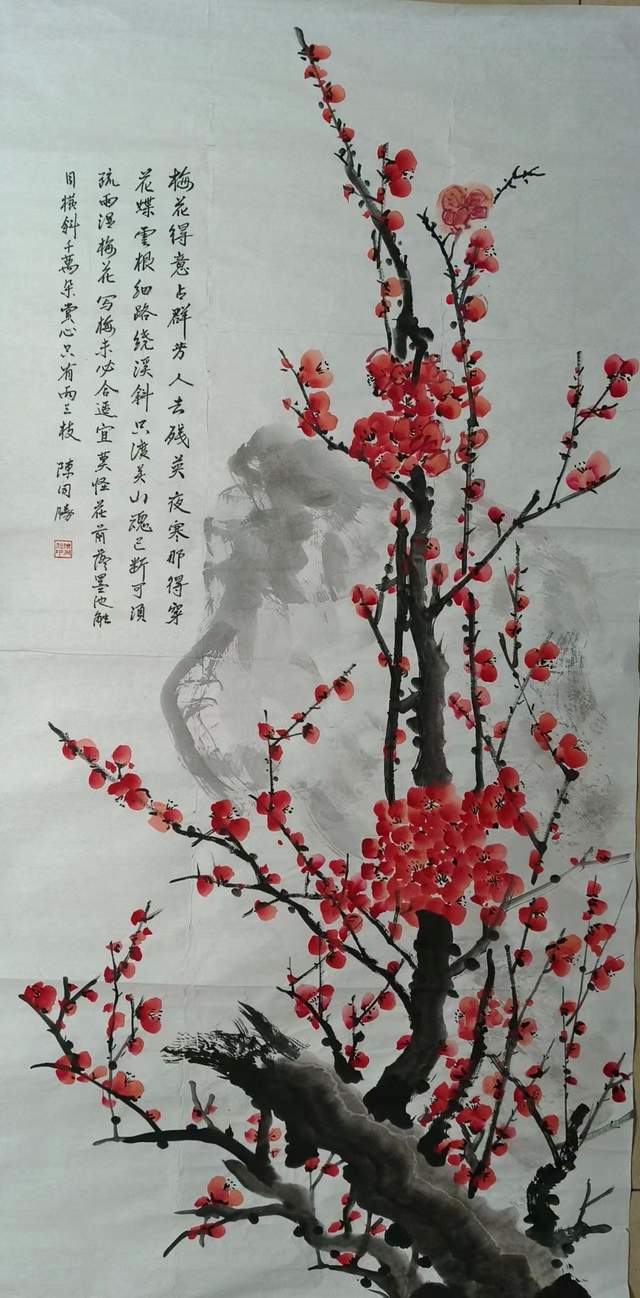 梅花得意占群芳人去残英夜寒那得穿
花蝶雲根细路绕溪斜只渡关山魂已断可须
疏雨湿梅花写梅未必合适宜莫怪花前落墨池触
目横斜千萬朵赏心只有两三枝 陳同勝